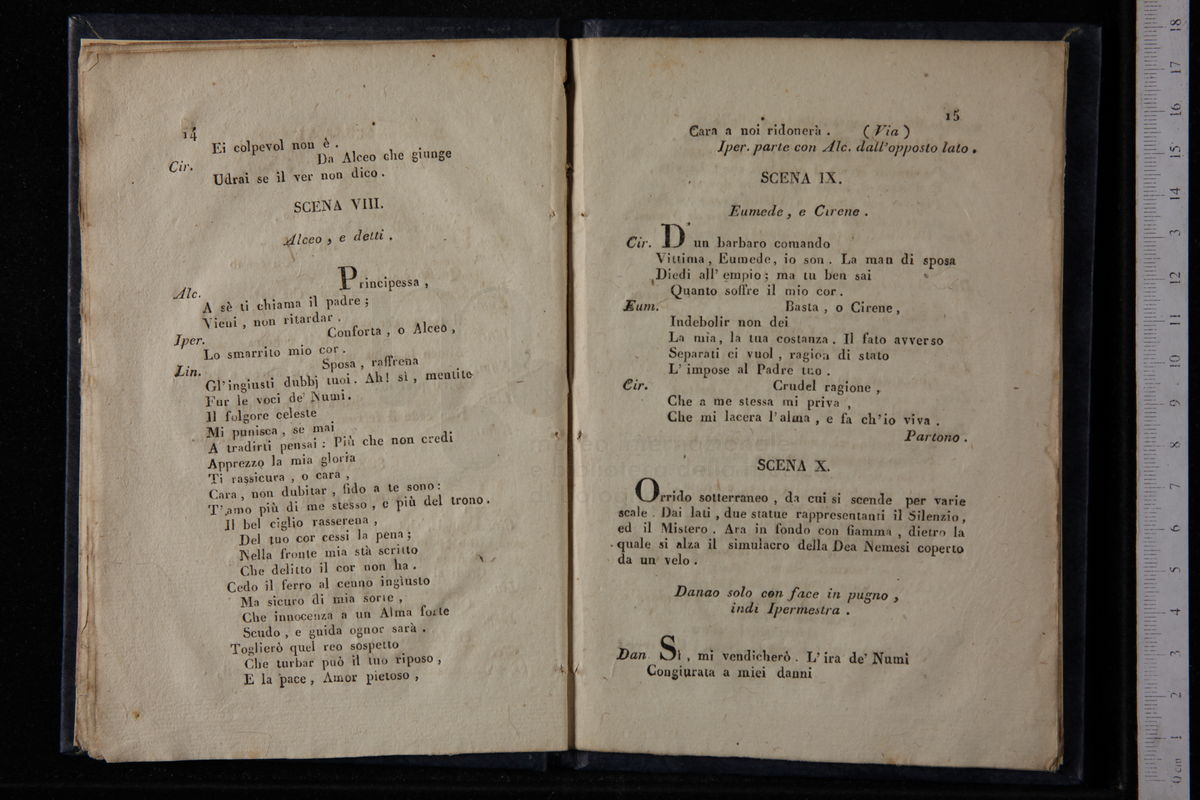 14
Ei colpevol non è .
Cir. Da Alceo che giunge
Udrai se il ver non dico .
SCENA VIII.
Alceo , e detti .
Alc. Principessa ,
A sè ti chiama il padre ;
Vieni , non ritardar .
Iper. Conforta , o Alceo ,
Lo smarrito mio cor .
Lin. Sposa , raffrena
Gl' ingiusti dubbj tuoi . Ah ! sì , mentite
Fur le voci de' Numi .
Il folgore celeste
Mi punisca , se mai
A tradirti pensai : Più che non credi
Apprezzo la mia gloria
Ti rassicura , o cara ,
Cara , non dubitar , fido a te sono :
T' amo più di me stesso , e più del trono .
Il bel ciglio rasserena ,
Del tuo cor cessi la pena ;
Nella fronte mia stà scritto
Che delitto il cor non ha .
Cedo il ferro al cenno ingiusto
Ma sicuro di mia sorte ,
Che innocenza a un Alma forte
Scudo , e guida ognor sarà .
Toglierò quel reo sospetto
Che turbar può il tuo riposo ,
E la pace , Amor pietoso ,
15
Cara a noi ridonerà . ( Via )
Iper. parte con Alc. dall' opposto lato .
SCENA IX.
Eumede , e Cirene .
Cir. D' un barbaro comando
Vittima , Eumede , io son . La man di sposa
Diedi all' empio ; ma tu ben sai
Quanto soffre il mio cor .
Eum. Basta , o Cirene ,
Indebolir non dei
La mia , la tua costanza . Il fato avverso
Separati ci vuol , ragion di stato
L' impose al Padre tuo .
Cir. Crudel ragione ,
Che a me stessa mi priva ,
Che mi lacera l' alma , e fa ch' io viva .
Partono .
SCENA X.
Orrido sotterraneo , da cui si scende per varie
scale . Dai lati , due statue rappresentanti il Silenzio ,
ed il Mistero . Ara in fondo con fiamma , dietro la
quale si alza il simulacro della Dea Nemesi coperto
da un velo .
Danao solo con face in pugno ,
indi Ipermestra .
Dan Sì , mi vendicherò . L' ira de' Numi
Congiurata a miei danni